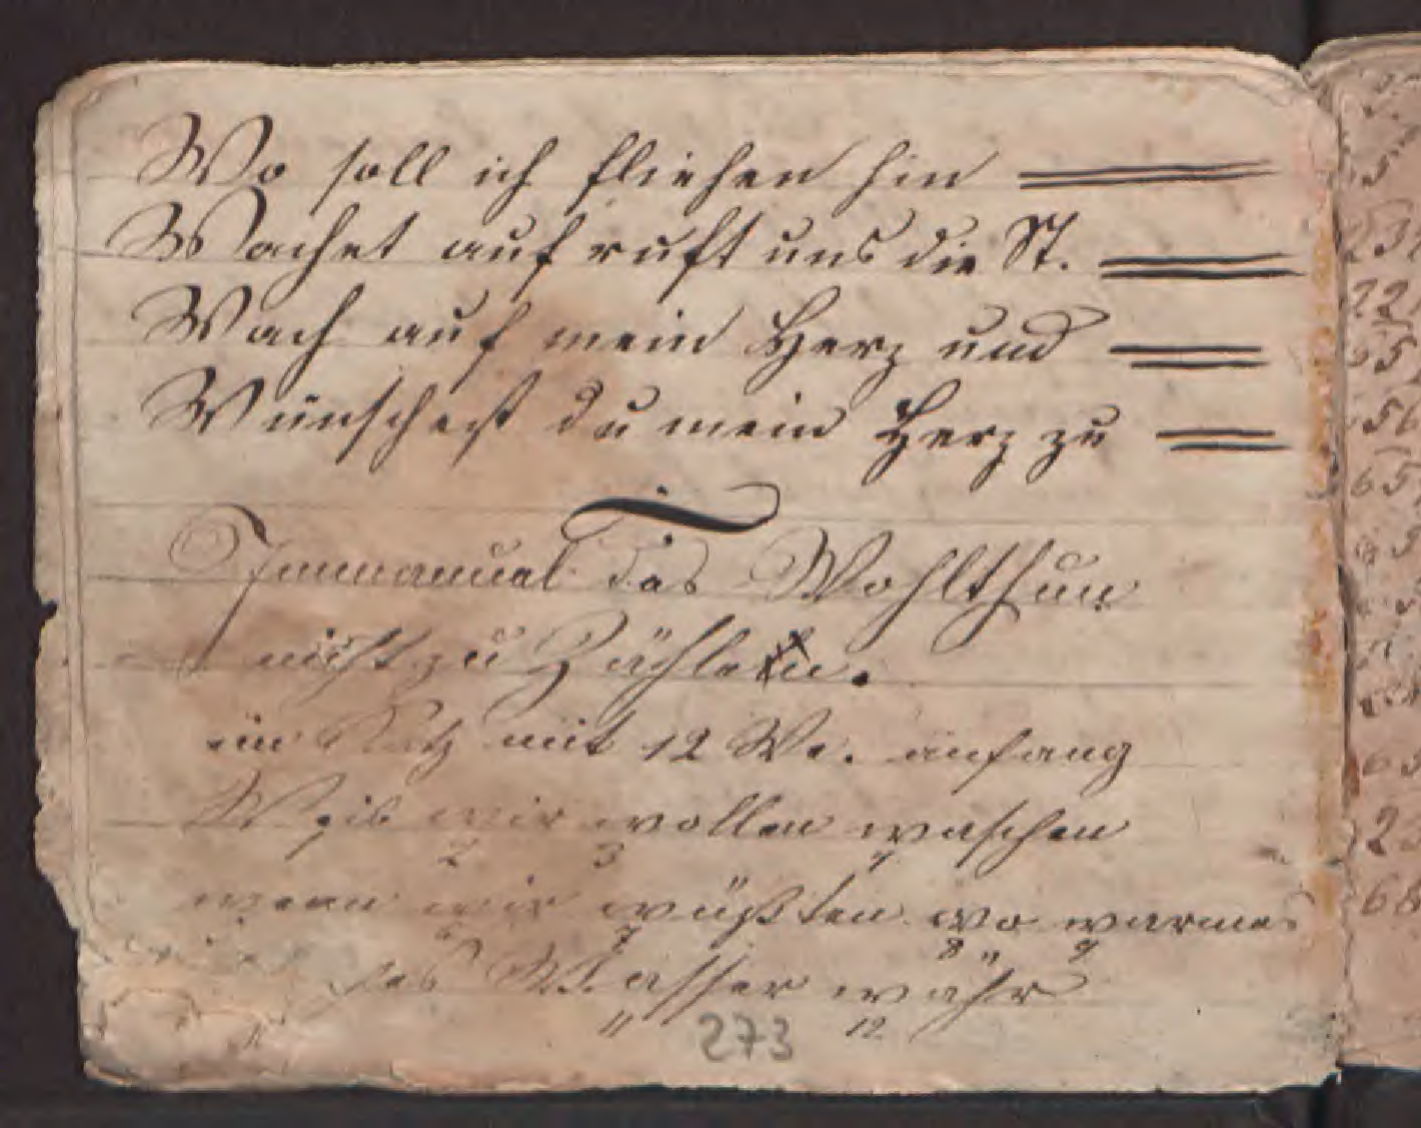 Wo soll ich fliehen hin
Wachet auf ruft uns die St.
Wach auf mein Herz und
Wünschest du mein Herz zu
Immanuel das Wohlthun
nicht zu Zählen.
ein Satz mit 12 We. anfang
Weib wir wollen waschen
2 3 4
wenn wir wüßten wo warmes
6 7 8 9
Wasser währ
11 12
273